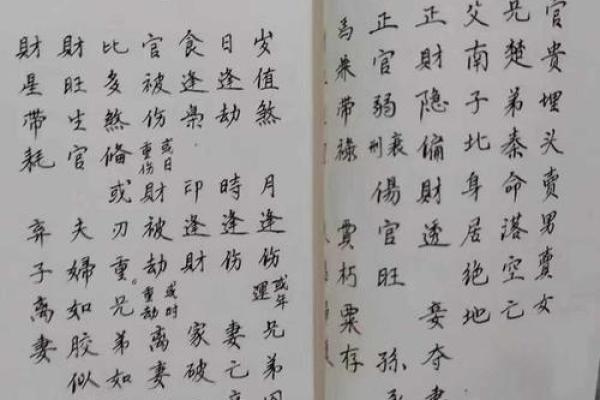 官貴埋头賣男賣女
兄楚弟秦命落空亡
父南子北身居绝地
正財隐偏財透 妾夺
正官弱衰刑傷官旺 孫
馬带祿 貫朽粟存
岁值煞 月逢伤或年運 兄弟
日逢劫 時逢伤 妻亡
食逢枭 印逢財 家破
官被伤或日重伤 財被劫或时重劫 离妻
比多煞偹 或刃重。兄弟如
財旺生官 夫婦如胶似
財星带耗 弃子离妻